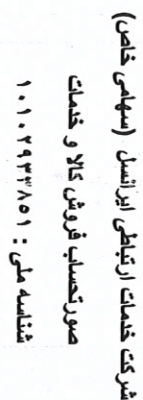 شرکت خدمات ارتباطی ایرانسل (سهامی خاص)
صورتحساب فروش کالا و خدمات
شناسه ملی : ۱۰۱۰۲۹۳۳۸۵۱